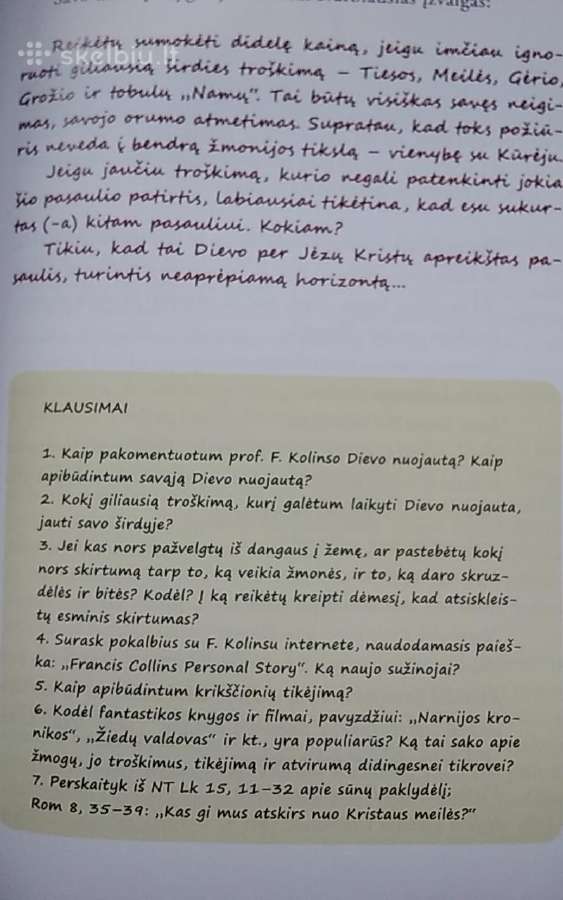 įžvalgas:
skelbiu.lt
Reikėtų sumokėti didelę kainą, jeigu imčiau igno-
ruoti giliausią širdies troškimą – Tiesos, Meilės, Gėrio,
Grožio ir tobulų „Namų“. Tai būtų visiškas savęs neigi-
mas, savojo orumo atmetimas. Supratau, kad toks požiū-
ris neveda į bendrą žmonijos tikslą – vienybę su Kūrėju.
Jeigu jaučiu troškimą, kurio negali patenkinti jokia
šio pasaulio patirtis, labiausiai tikėtina, kad esu sukur-
tas (-a) kitam pasauliui. Kokiam?
Tikiu, kad tai Dievo per Jėzų Kristų apreikštas pa-
saulis, turintis neaprėpiamą horizontą...
KLAUSIMAI
1. Kaip pakomentuotum prof. F. Kolinso Dievo nuojautą? Kaip
apibūdintum savąją Dievo nuojautą?
2. Kokį giliausią troškimą, kurį galėtum laikyti Dievo nuojauta,
jauti savo širdyje?
3. Jei kas nors pažvelgtų iš dangaus į žemę, ar pastebėtų kokį
nors skirtumą tarp to, ką veikia žmonės, ir to, ką daro skruz-
dėlės ir bitės? Kodėl? Į ką reikėtų kreipti dėmesį, kad atsiskleis-
tų esminis skirtumas?
4. Surask pokalbius su F. Kolinsu internete, naudodamasis paieš-
ka: „Francis Collins Personal Story“. Ką naujo sužinojai?
5. Kaip apibūdintum krikščionių tikėjimą?
6. Kodėl fantastikos knygos ir filmai, pavyzdžiui: „Narnijos kro-
nikos“, „Žiedų valdovas“ ir kt., yra populiarūs? Ką tai sako apie
žmogų, jo troškimus, tikėjimą ir atvirumą didingesnei tikrovei?
7. Perskaityk iš NT Lk 15, 11–32 apie sūnų paklydėlį;
Rom 8, 35–39: „Kas gi mus atskirs nuo Kristaus meilės?“